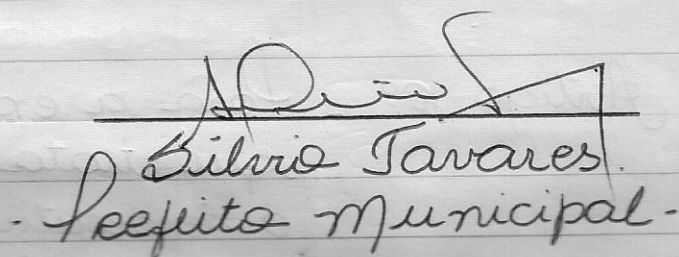 Silvio Tavares.
- Prefeito Municipal -